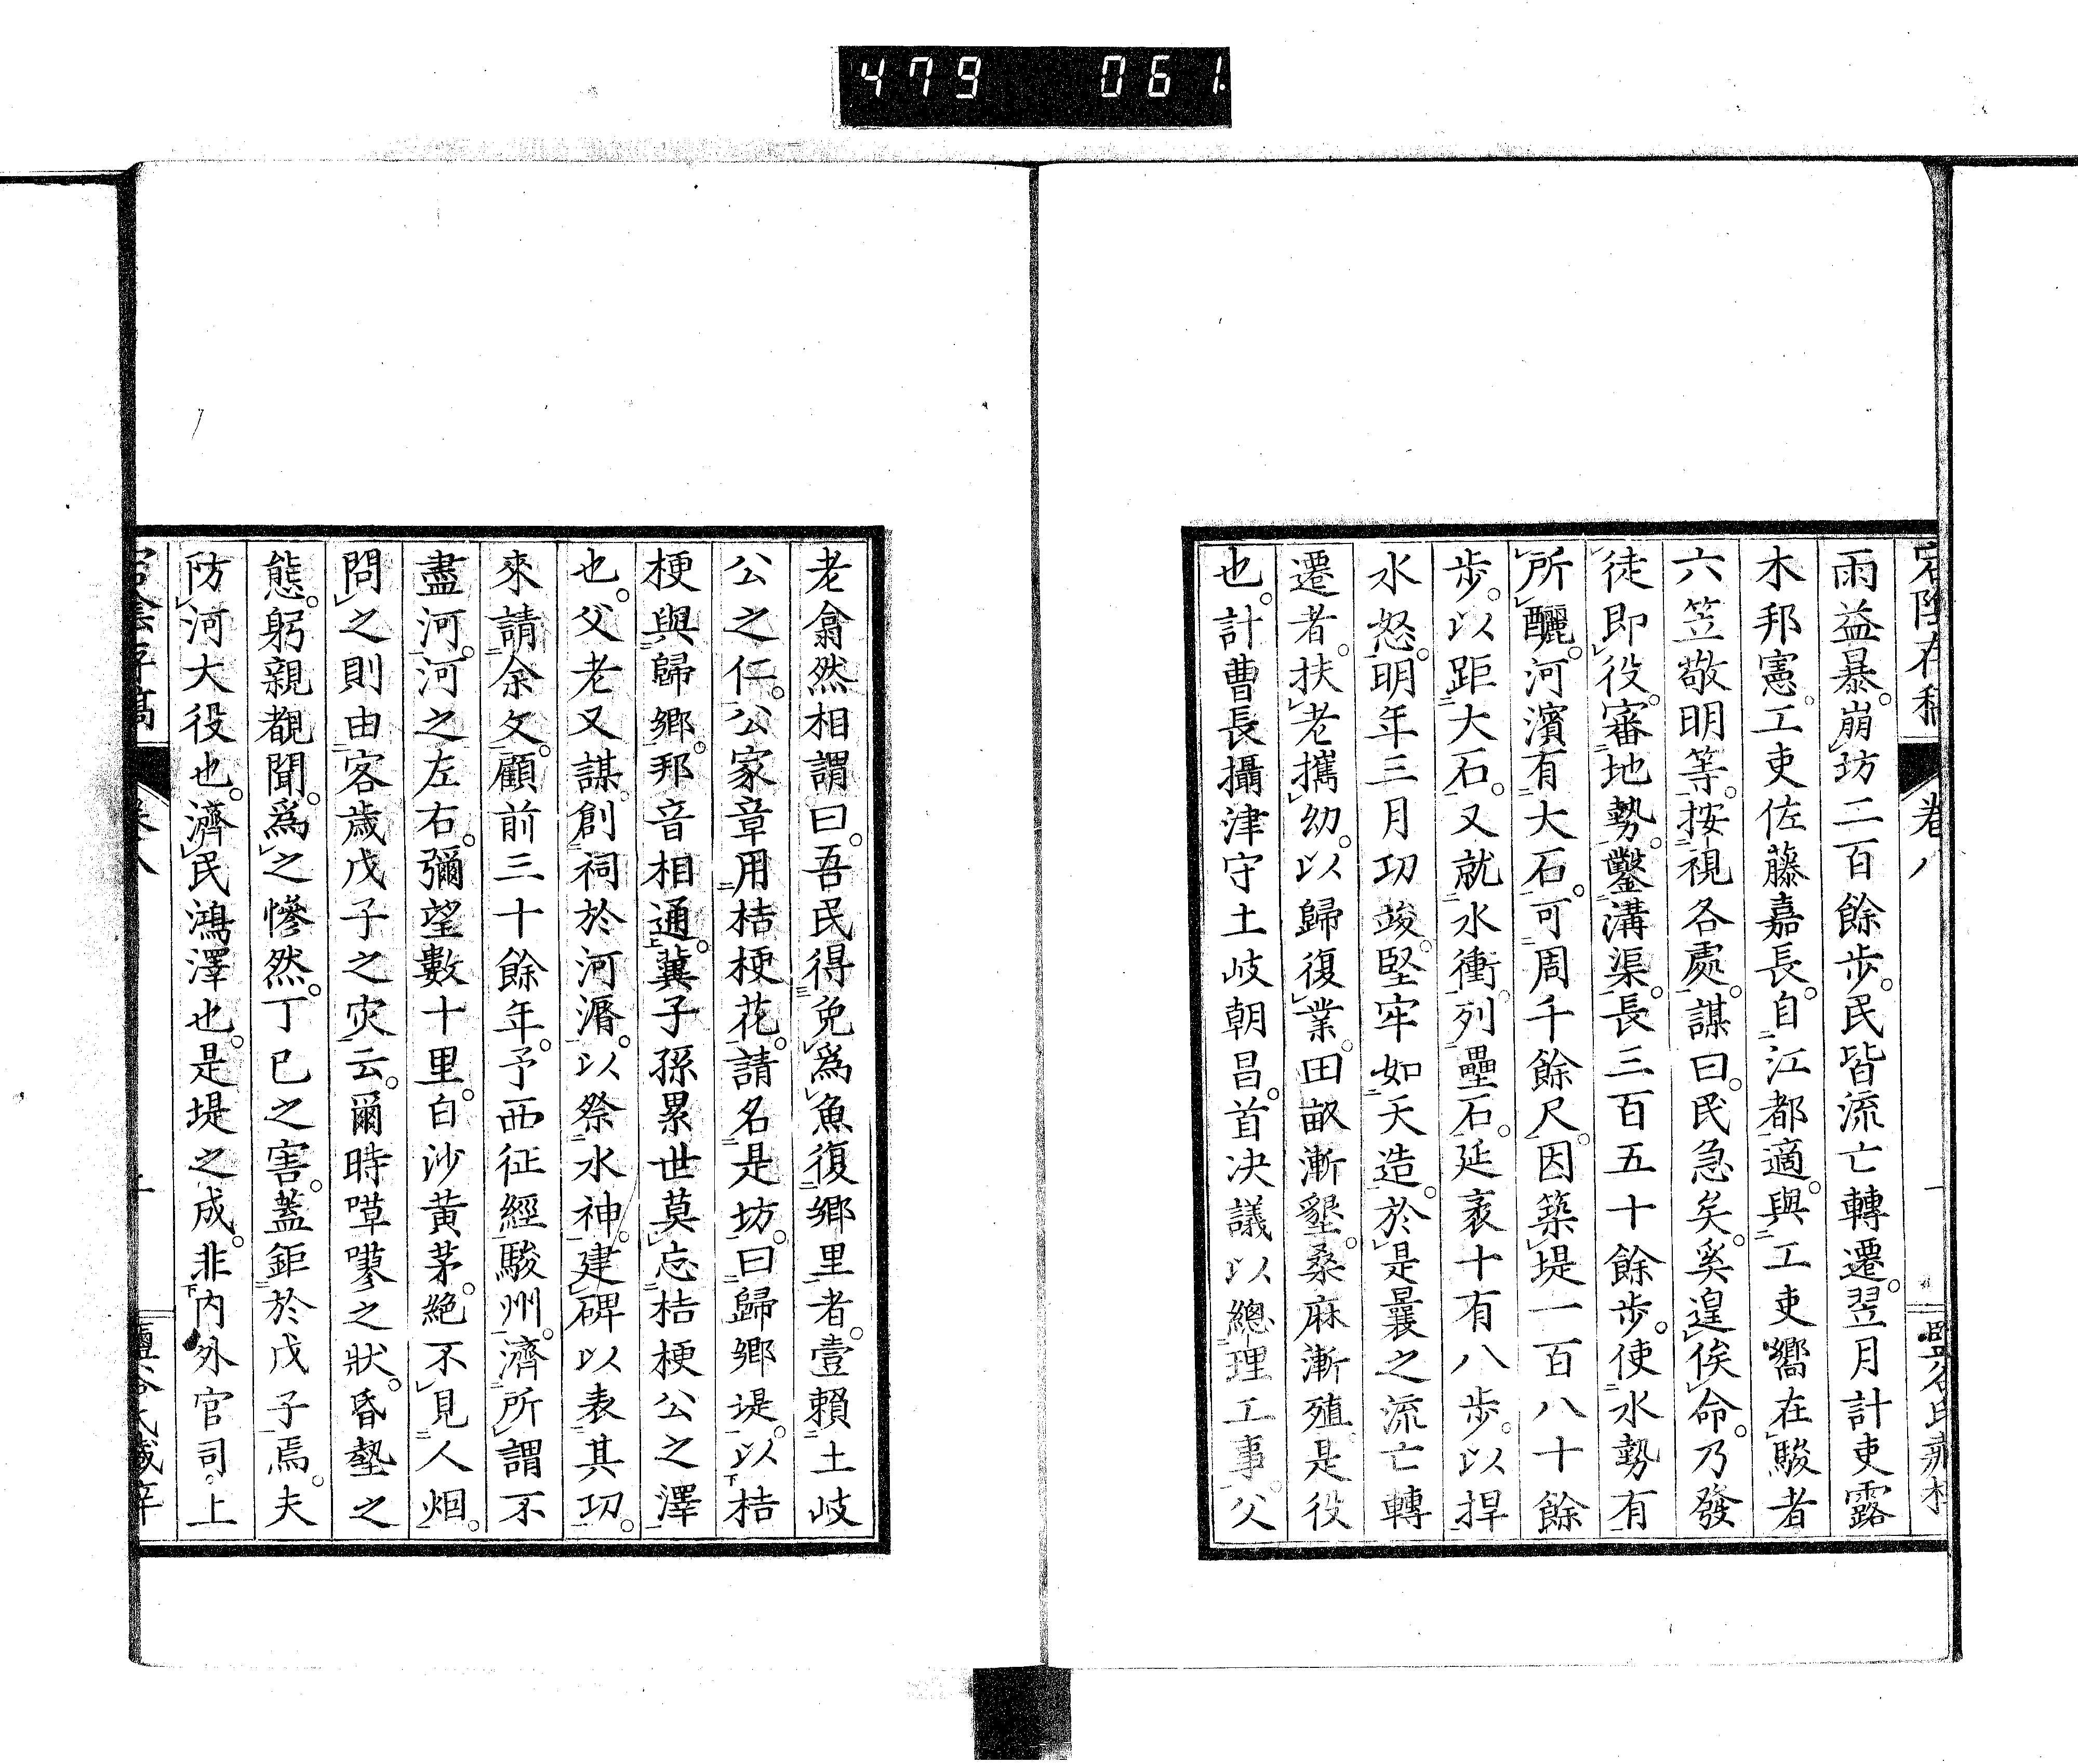 479 061
雨益暴。崩坊二百餘歩。民皆流亡轉遷。翌月計吏露
木邦憲。工吏佐藤嘉長。自江都適。與工吏嚮在駿者
六笠敬明等。按視各處。謀曰。民急矣。奚遑俟命。乃發
徒即役。審地勢。鑿溝渠。長三百五十餘歩。使水勢有
所釃。河濱有大石。可周千餘尺。因築堤一百八十餘
歩。以距大石。又就水衝。列壘石。延袤十有八歩。以捍
水怒。明年三月功竣。堅牢如天造。於是曩之流亡轉
遷者。扶老攜幼。以歸復業。田畝漸墾。桑麻漸殖。是役
也。計曹長攝津守土岐朝昌。首決議以總理工事。父
老翕然相謂曰。吾民得免爲魚復鄉里者。壹賴土岐
公之仁。公家章用桔梗花。請名是坊。曰歸鄉堤。以桔
梗與歸鄉。邦音相通。冀子孫累世莫忘桔梗公之澤
也。父老又謀。創祠於河漘。以祭水神。建碑以表其功。
來請余文。顧前三十餘年。予西征經駿州。濟所謂不
盡河。河之左右。彌望數十里。白沙黄茅。絶不見人烟。
問之則由客歳戊子之灾云。爾時嘽嘐之狀。昏墊之
態。躬親覩聞。爲之慘然。丁巳之害。蓋鉅於戊子焉。夫
防河大役也。濟民鴻澤也。是堤之成。非内外官司。上
卷八